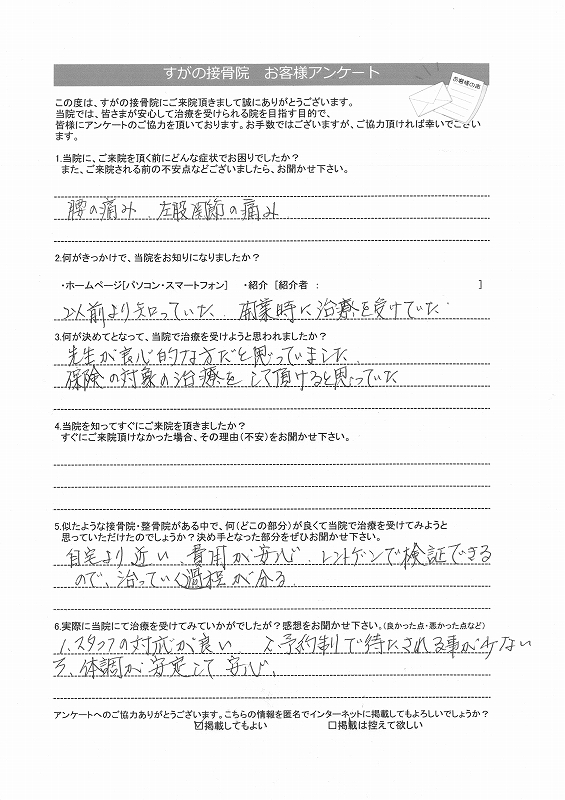 すがの接骨院　お客様アンケート
お客様の声
この度は、すがの接骨院にご来院頂きまして誠にありがとうございます。
当院では、皆さまが安心して治療を受けられる院を目指す目的で、
皆様にアンケートのご協力を頂いております。お手数ではございますが、ご協力頂ければ幸いでござい
ます。
1.当院に、ご来院を頂く前にどんな症状でお困りでしたか？
また、ご来院される前の不安点などございましたら、お聞かせ下さい。
腰の痛み、左股関節の痛み
2.何がきっかけで、当院をお知りになりましたか？
・ホームページ[パソコン・スマートフォン]　・紹介 [紹介者 :　]
以前より知っていた　開業時に治療を受けていた
3.何が決めてとなって、当院で治療を受けようと思われましたか？
先生が良心的な方だと思っていました
保険の対象の治療をして頂けると思っていた
4.当院を知ってすぐにご来院を頂きましたか？
すぐにご来院頂けなかった場合、その理由(不安)をお聞かせ下さい。
5.似たような接骨院・整骨院がある中で、何(どこの部分)が良くて当院で治療を受けてみようと
思っていただけたのでしょうか？決め手となった部分をぜひお聞かせ下さい。
自宅より近い、費用が安心　レントゲンで検証できる
ので、治っていく過程が分る
6.実際に当院にて治療を受けてみていかがでしたか？感想をお聞かせ下さい。(良かった点・悪かった点など)
1.スタッフの対応が良い　2.予約制で待たされる事が少ない
3.体調が安定して安心、
アンケートへのご協力ありがとうございます。こちらの情報を匿名でインターネットに掲載してもよろしいでしょうか？
☑掲載してもよい　□掲載は控えて欲しい